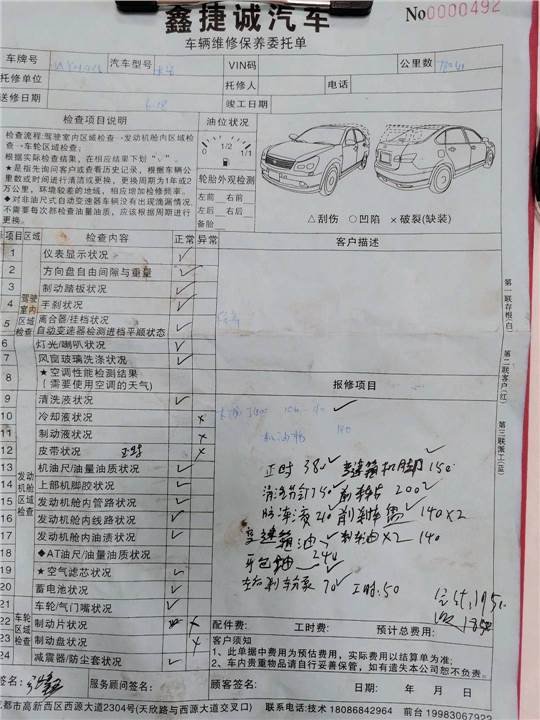 鑫捷诚汽车
No0000492
车辆维修保养委托单
车牌号 汽车型号 VIN码 公里数
托修单位 托修人 电话
送修日期 竣工日期
检查项目说明
检查流程:驾驶室内区域检查→发动机舱内区域检查→车轮区域检查;
根据实际检查结果,在相应结果下划“√”。
★是指先询问客户或查看历史记录,根据车辆公里数或时间进行清洁或更换。更换周期为1年或2万公里,环境较差的地域,相应增加检修频率。
◆对非油尺式自动变速器车辆没有出现滴漏情况,不需要每次都检查油量油质,应该根据周期进行更换。
油位状况
0 1/2 1/1
轮胎外观检测
左前 右前
左后 右后
备胎
△刮伤 ○凹陷 ×破裂(缺装)
项目 区域 检查内容 正常 异常
客户描述
驾驶室内区域检查
1 仪表显示状况 √
2 方向盘自由间隙与重量 √
3 制动踏板状况 √
4 手刹状况 √
5 离合器/挂档状况
自动变速器检测进档平顺状态 √
6 灯光/喇叭状况 √
7 风窗玻璃洗涤状况 √
8 ★空调性能检测结果
(需要使用空调的天气)
报修项目
发动机舱区域检查
9 清洗液状况 √
10 冷却液状况 ×
11 制动液状况 ×
12 皮带状况 正时 ×
13 机油尺/油量油质状况 √
14 上部机脚胶状况 √
15 发动机舱内管路状况 √
16 发动机舱内线路状况 √
17 发动机舱内油渍状况 √
18 ◆AT油尺/油量油质状况
19 ★空气滤芯状况 √
20 蓄电池状况 √
车轮区域检查
21 车轮/气门嘴状况 √
22 制动片状况 ×
23 制动盘状况 ×
24 减震器/防尘套状况 √
正时 380 变速箱机脚 150
清洗节气门 150 200
防冻液 210 刹车盘 140×2
变速箱油 140
240
70 工时:50
1850
配件费: 工时费: 预计总费用:
客户须知
1、此单据中费用为预估费用,实际费用以结算单为准;
2、车内贵重物品请自行妥善保管,如有遗失本公司恕不负责。
签名: 服务顾问签名: 顾客签名: 日期: 年 月 日
都市高新西区西源大道2304号(天欣路与西源大道交叉口) 联系电话:技术 18086842964 前台 19983067922
第一联存根(白)
第二联客户(红)
第三联派工(蓝)